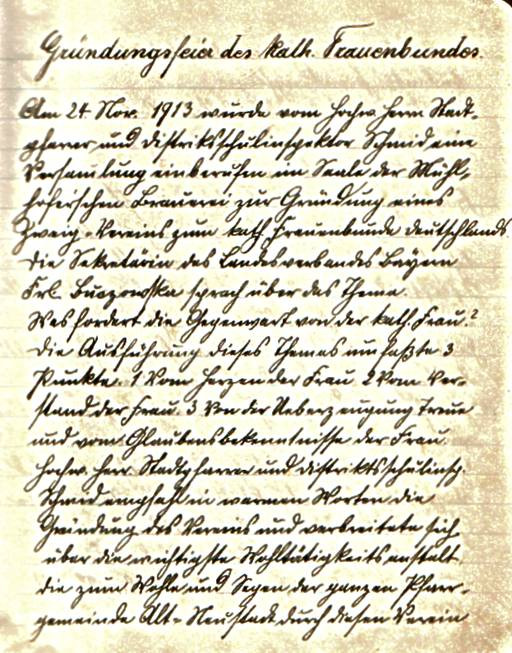 Gründungsfeier des kath. Frauenbundes.
Am 24. Nov. 1913 wurde vom hochw. Herrn Stadt-
pfarrer und Distriktsschulinspektor Schmid eine
Versamlung einberufen im Saale der Mühl-
hoferschen Brauerei zur Gründung eines
Zweig-Vereins zum kath. Frauenbunde Deutschlands.
Die Sekretärin des Landesverbandes Bayern
Frl. Buczowska sprach über das Thema.
Was fordert die Gegenwart von der kath. Frau?
Die Ausführung dieses Themas umfaßte 3
Punkte. 1 Vom Herzen der Frau 2 Vom Ver-
stand der Frau. 3 Von der Ueberzeugung Treue
und vom Glaubensbekenntnisse der Frau.
Hochw. Herr Stadtpfarrer und Distriktsschulinsp.
Schmid empfahl in warmen Worten die
Gründung des Vereins und verbreitete sich
über die wichtigste Wohltätigkeitsanstalt
die zum Wohle und Segen der ganzen Pfarr-
gemeinde Alt-Neustadt durch diesen Verein